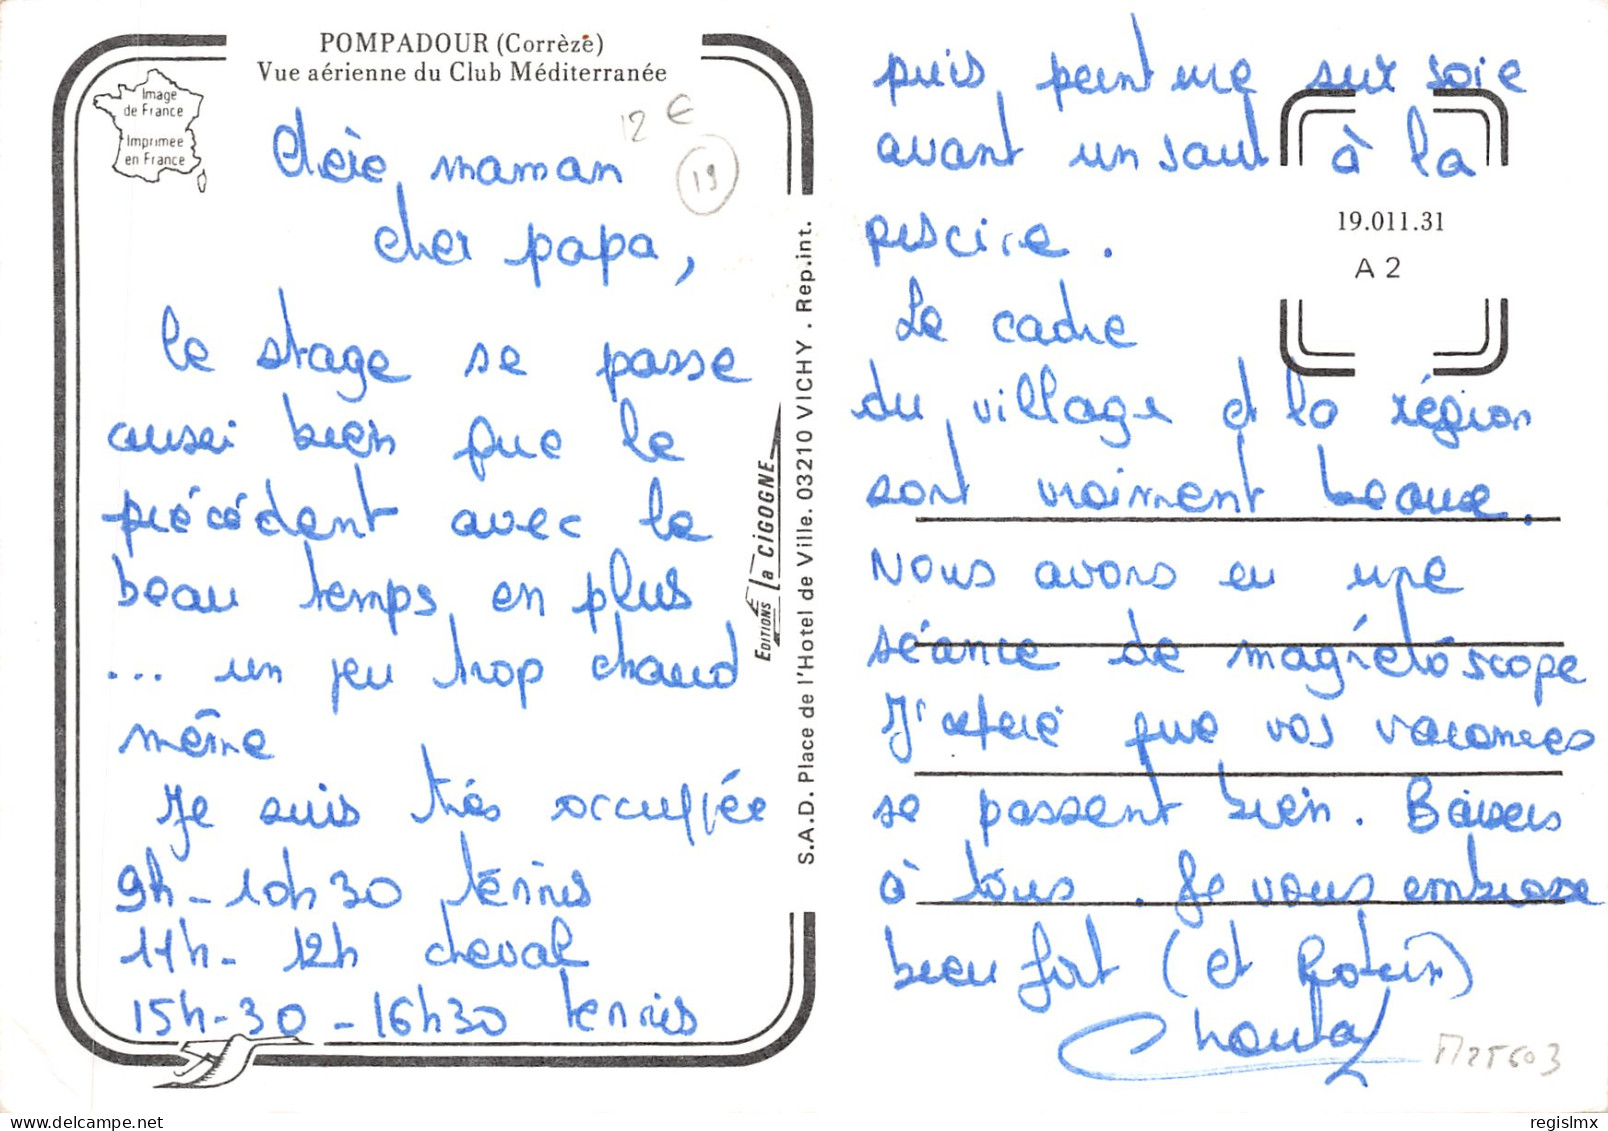 POMPADOUR (Corrèze)
Vue aérienne du Club Méditerranée
Image
de France
Imprimée
en France
12 €
19
Chère maman
cher papa,
le stage se passe
aussi bien que le
précédent avec le
beau temps en plus
... un peu trop chaud
même
Je suis très occuppée
9h - 10h30 tennis
11h - 12h cheval
15h-30 - 16h30 tennis
EDITIONS La CIGOGNE
S.A.D. Place de l'Hotel de Ville. 03210 VICHY . Rep.int.
puis peinture sur soie
avant un saut à la
piscine.
Le cadre
du village et la région
sont vraiment beaux.
Nous avons eu une
séance de magnétoscope
J'espère que vos vacances
se passent bien. Baisers
à tous. Je vous embrasse
bien fort (et Robin)
19.011.31
A 2
M25603
delcampe.net
regislmx